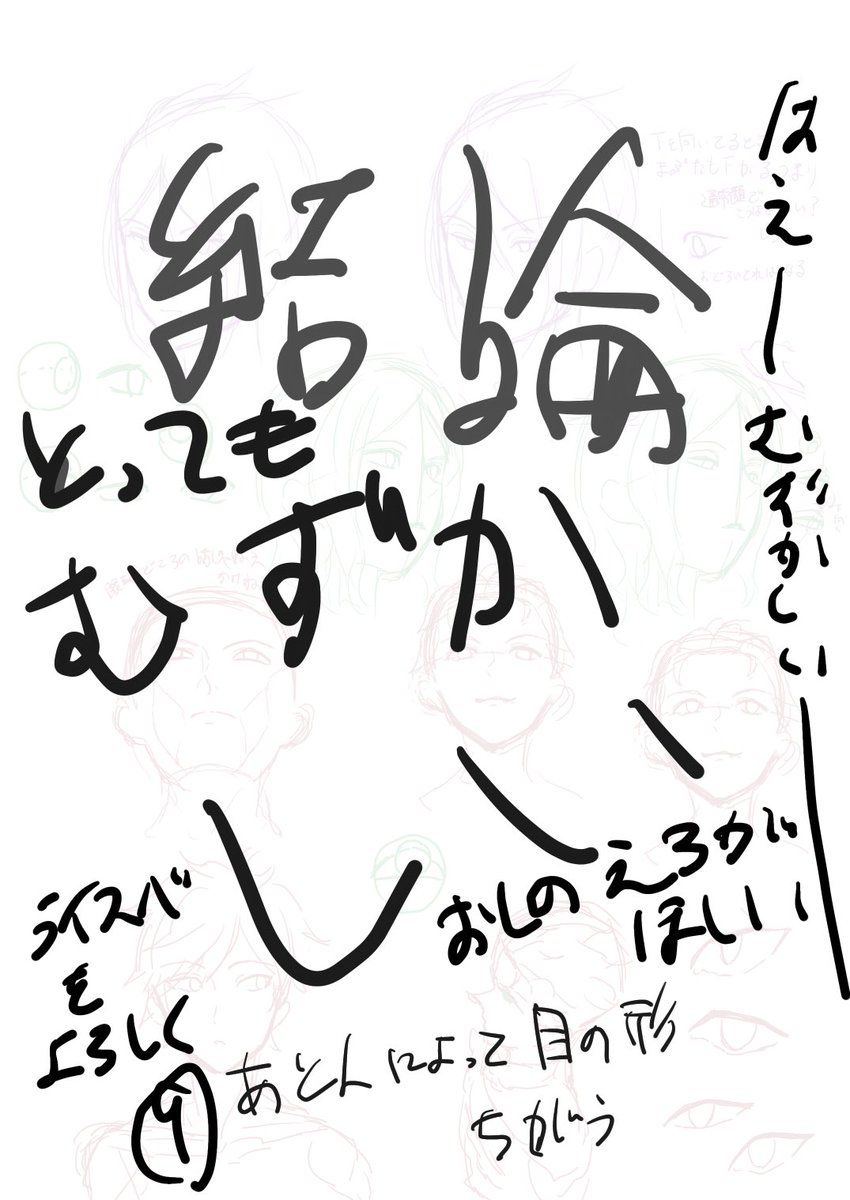 結論
とっても
むずかしい
はえー
むずかしいー
おしのえろが
ほしい
ライスバ
を
よろしく
9
あと人によって目の形
ちがう
下を向いてると